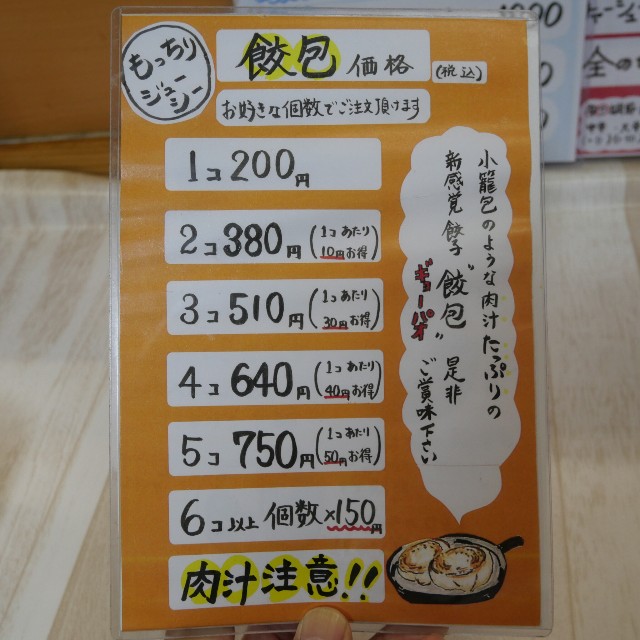 もっちり
ジューシー
餃包 価格 (税込)
お好きな個数でご注文頂けます
1コ 200円
2コ 380円 (1コあたり
10円お得)
3コ 510円 (1コあたり
30円お得)
4コ 640円 (1コあたり
40円お得)
5コ 750円 (1コあたり
50円お得)
6コ以上 個数×150円
肉汁注意!!
小籠包のような肉汁たっぷりの
新感覚餃子"餃包"是非
ギョーパオ
ご賞味下さい